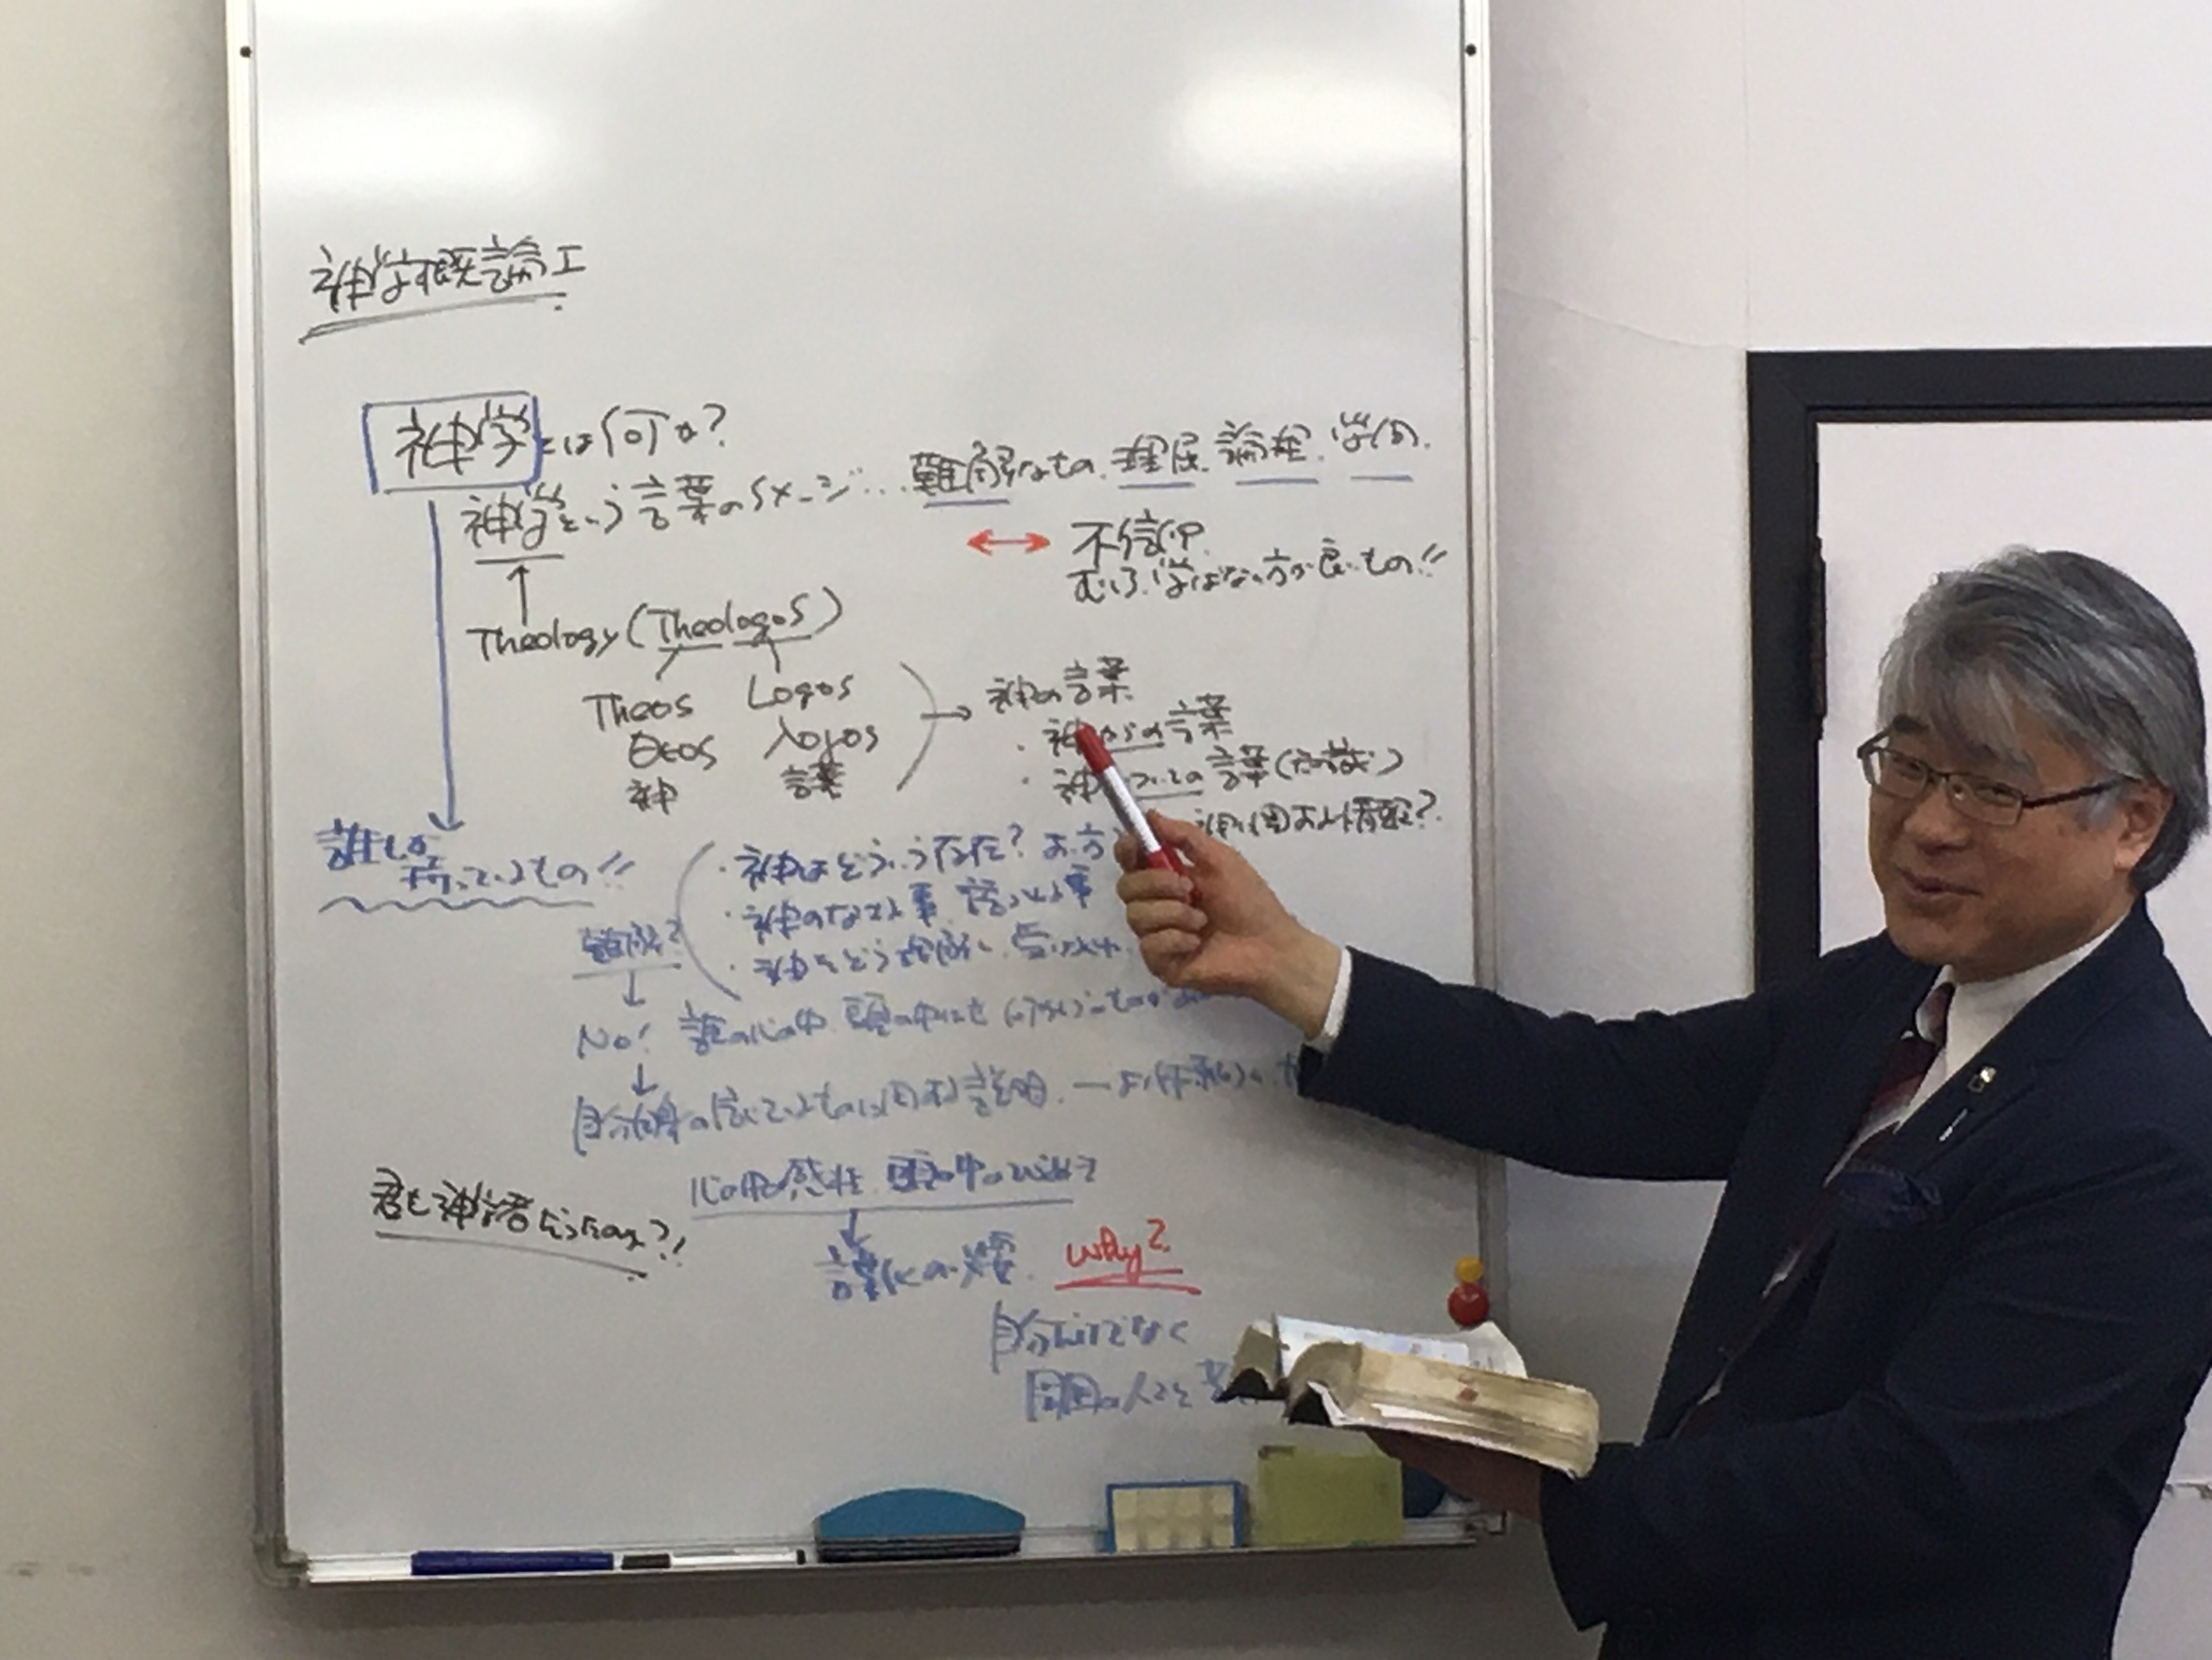 神学概論 I
神学とは何か?
神学という言葉のイメージ… 難解なもの、理屈、論理、学的
↔ 不信仰
むしろ学ばない方が良いもの!!
Theology (Theologos)
Theos Logos → 神の言葉
θεος λογος ・神からの言葉
神 言葉 ・神についての言葉
誰しもが
持っているもの!!
・神はどういう存在?お方
・神のなさる事、語られる事
難解? ・神をどう理解し、受け止め
↓
No! 誰の心の中、頭の中にも
↓
自分自身の信じているものに関する説明、
心の中の感性、頭の中の
君も神学者だったのか?!
↓
言葉化の必要 Why?
自分だけでなく
周囲の人々と